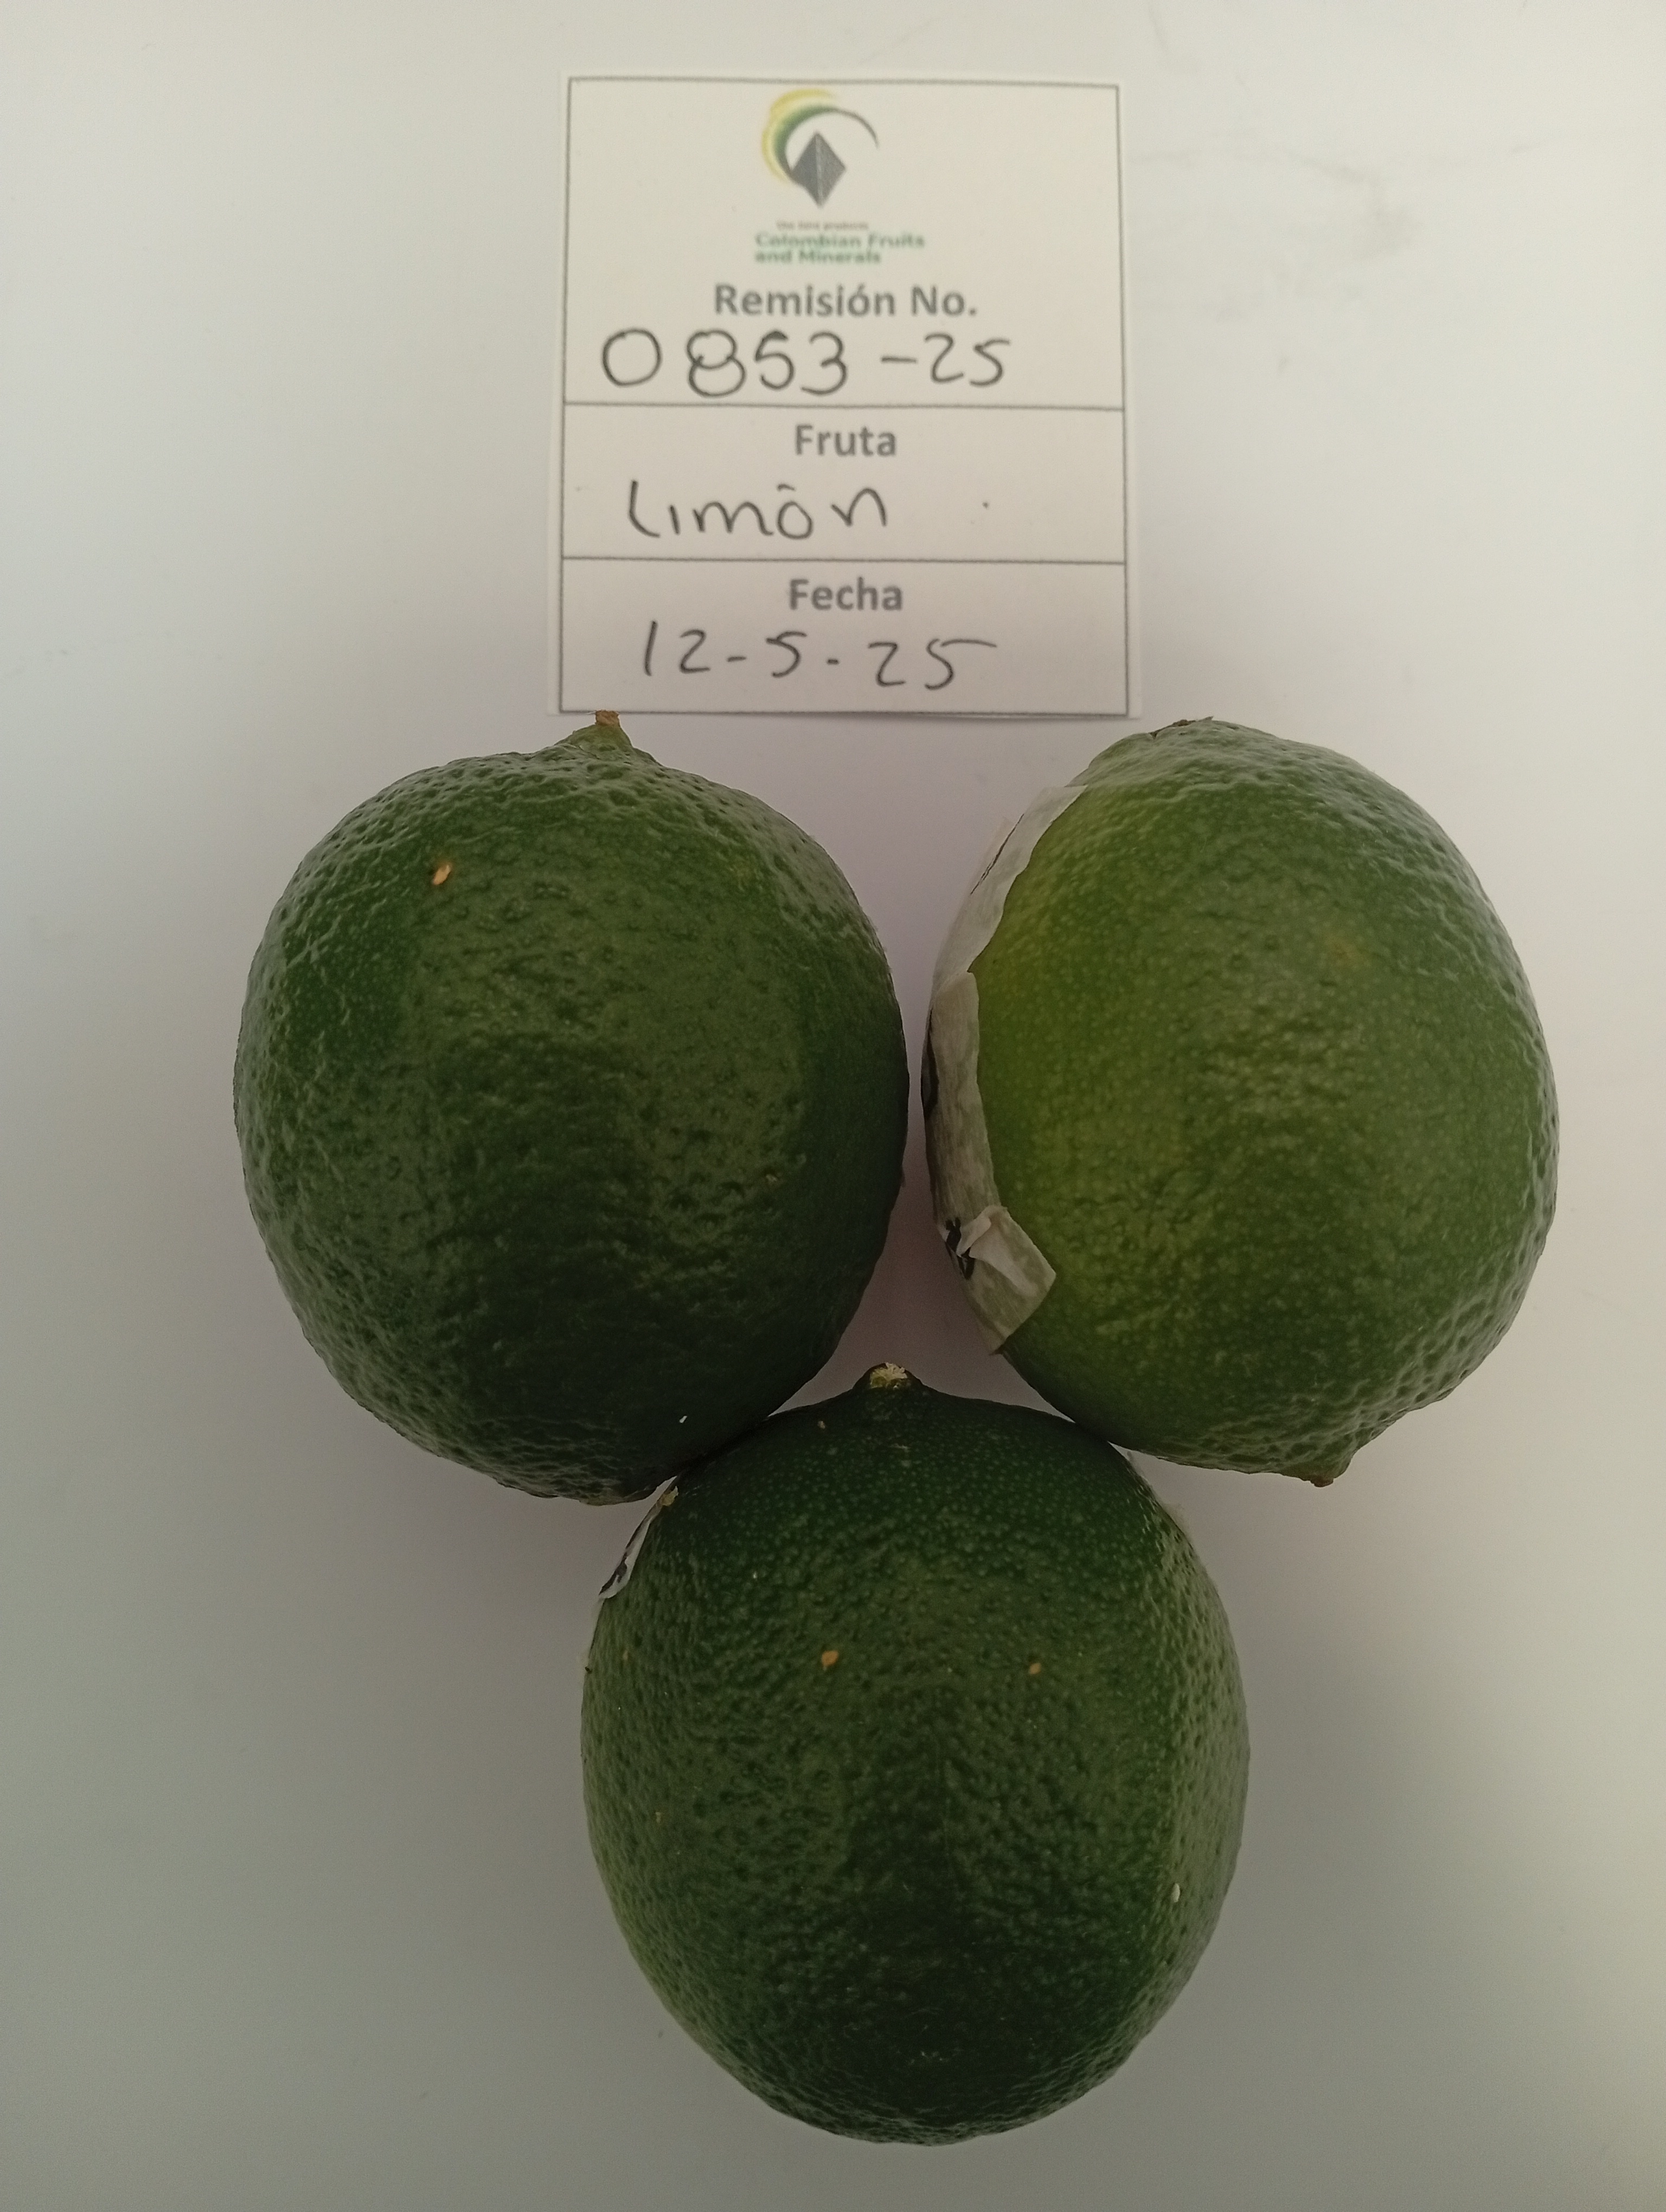 The best products
Colombian Fruits
and Minerals
Remisión No.
0853-25
Fruta
Limón
Fecha
12-5-25